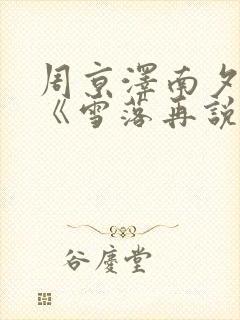 周京澤南夕
《雪落再說
谷慶堂